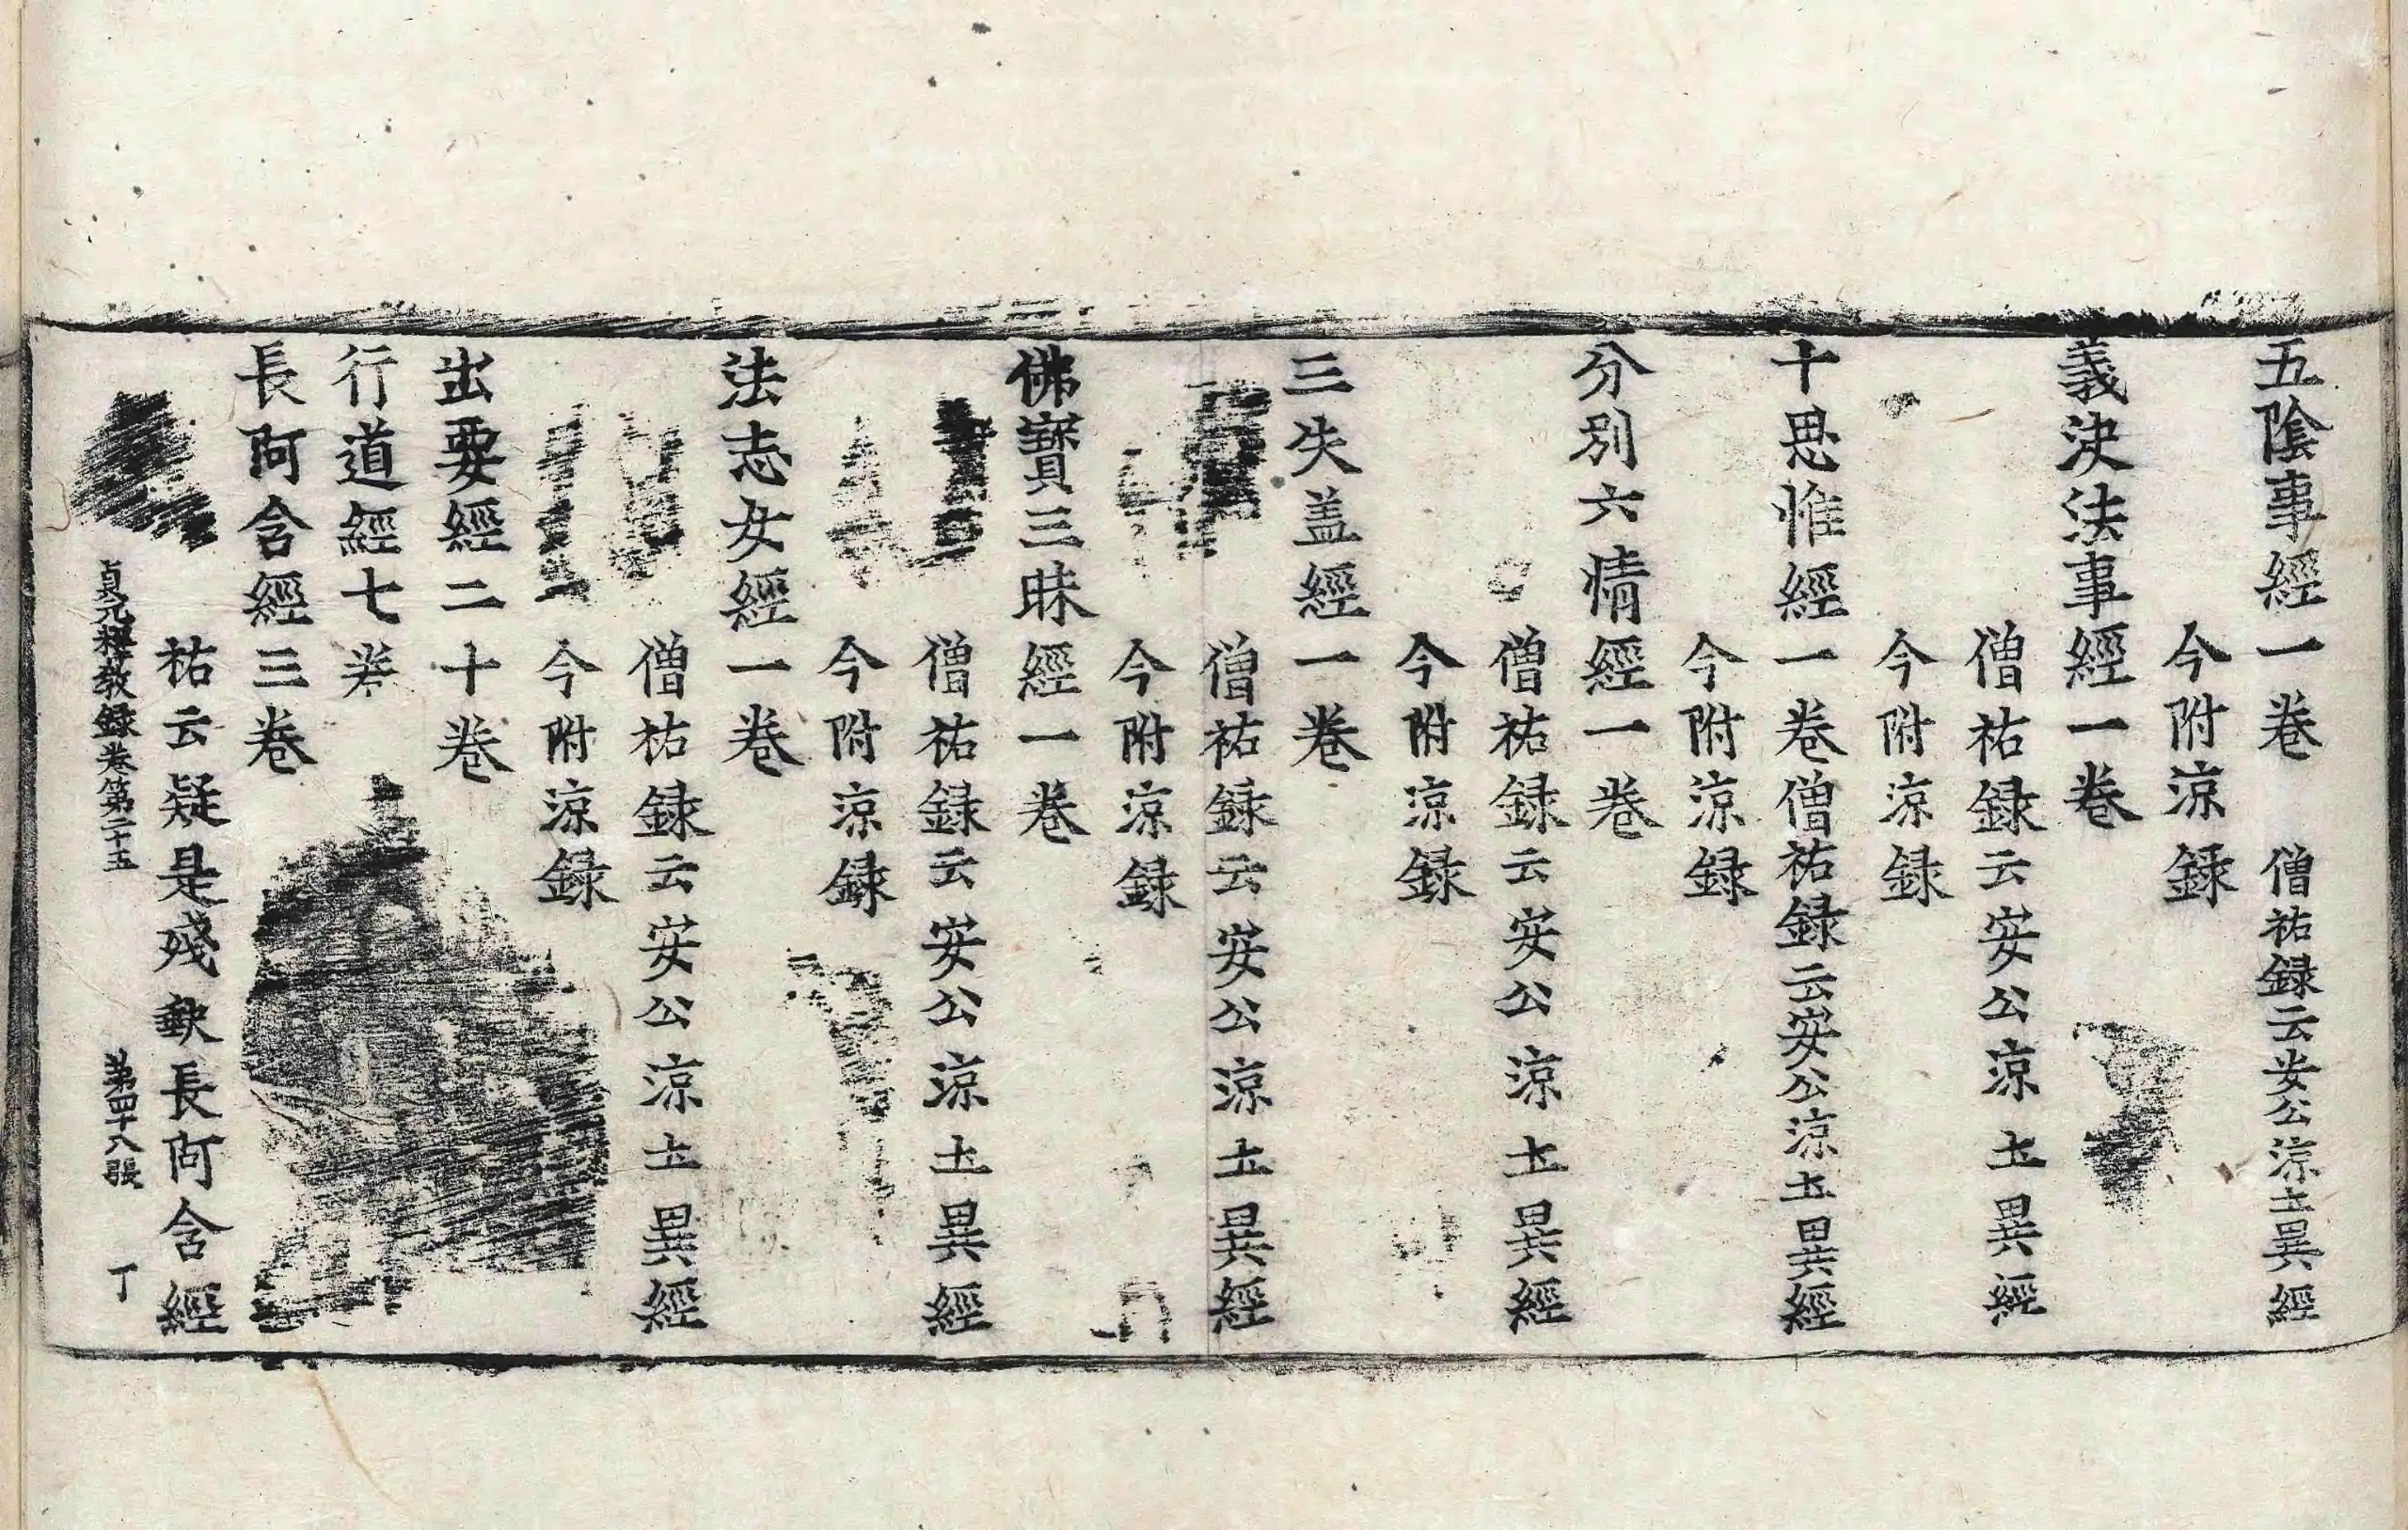 五陰事經一卷　僧祐録云安公涼圡異經
今附涼録
義決法事經一卷
僧祐録云安公涼圡異經
今附涼録
十思惟經一卷僧祐録云安公涼圡異經
今附涼録
分別六情經一卷
僧祐録云安公涼圡異經
今附涼録
三失盖經一卷
僧祐録云安公涼圡異經
今附涼録
佛寶三昧經一卷
僧祐録云安公涼圡異經
今附涼録
法志女經一卷
僧祐録云安公涼圡異經
今附涼録
出要經二十卷
行道經七卷
長阿含經三卷
祐云疑是殘缺長阿含經
貞元釋教録卷第二十五　第四十八張　丁